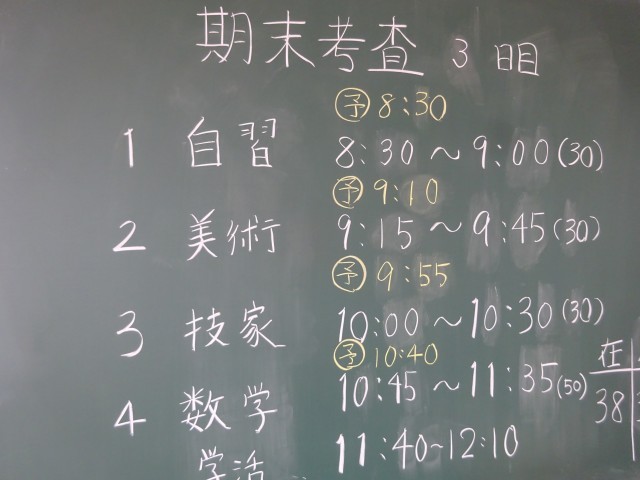 期末考査 3日目
予 8:30
1 自習 8:30～9:00(30)
予 9:10
2 美術 9:15～9:45(30)
予 9:55
3 技家 10:00～10:30(30)
予 10:40
4 数学 10:45～11:35(50)
学活 11:40~12:10
在
38